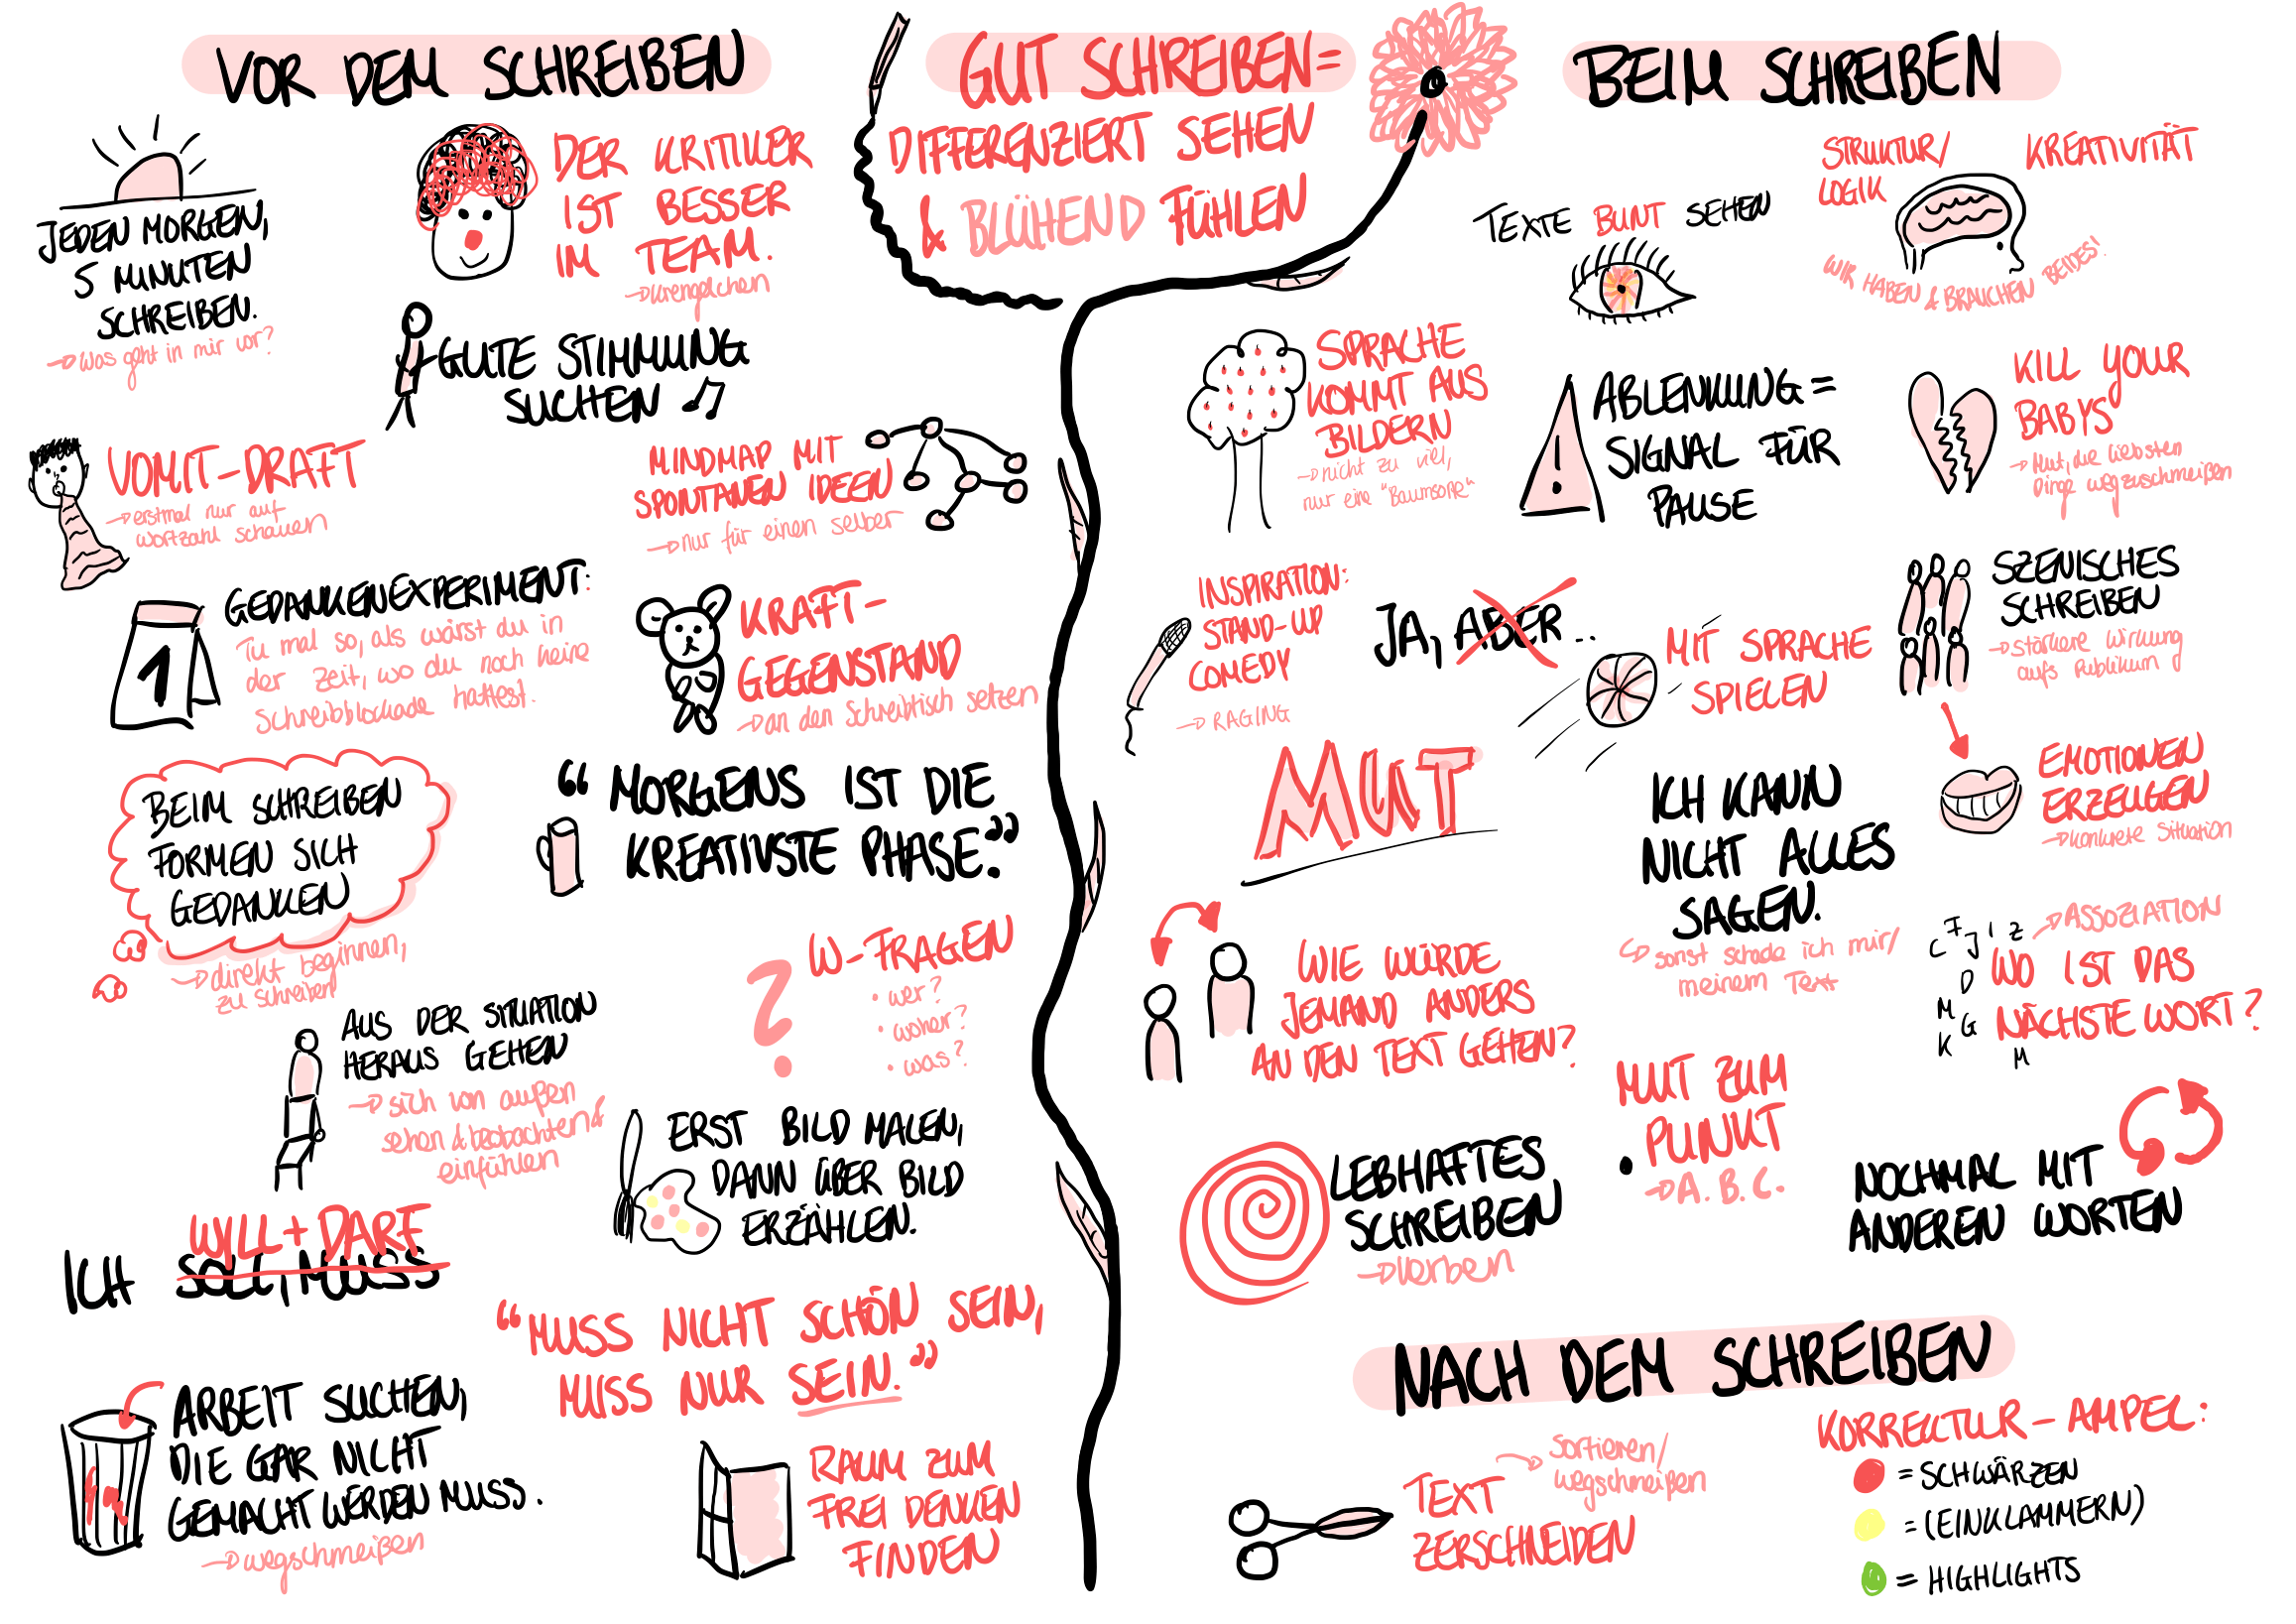 VOR DEM SCHREIBEN
JEDEN MORGEN,
5 MINUTEN
SCHREIBEN.
→ Was geht in mir vor?
DER KRITIKER
IST BESSER
IM TEAM.
→ Krengelchen
GUTE STIMMUNG
SUCHEN
VOMIT-DRAFT
→ erstmal nur auf
Wortzahl schauen
MINDMAP MIT
SPONTANEN IDEEN
→ nur für einen selber
GEDANKENEXPERIMENT:
Tu mal so, als wärst du in
der Zeit, wo du noch keine
Schreibblockade hattest.
1
KRAFT-
GEGENSTAND
→ an den Schreibtisch setzen
BEIM SCHREIBEN
FORMEN SICH
GEDANKEN
→ direkt beginnen,
zu schreiben
“MORGENS IST DIE
KREATIVSTE PHASE.”
W-FRAGEN
• wer?
• woher?
• was?
?
AUS DER SITUATION
HERAUS GEHEN
→ sich von außen
sehen & beobachten &
einfühlen
ERST BILD MALEN,
DANN ÜBER BILD
ERZÄHLEN.
WILL + DARF
ICH SOLL, MUSS
“MUSS NICHT SCHÖN SEIN,
MUSS NUR SEIN.”
ARBEIT SUCHEN,
DIE GAR NICHT
GEMACHT WERDEN MUSS.
→ wegschmeißen
RAUM ZUM
FREI DENKEN
FINDEN
GUT SCHREIBEN =
DIFFERENZIERT SEHEN
& BLÜHEND FÜHLEN
BEIM SCHREIBEN
TEXTE BUNT SEHEN
STRUKTUR/
LOGIK
KREATIVITÄT
WIR HABEN & BRAUCHEN BEIDES!
SPRACHE
KOMMT AUS
BILDERN
→ nicht zu viel,
nur eine "Baumsorte"
!
ABLENKUNG =
SIGNAL FÜR
PAUSE
KILL YOUR
BABYS
→ Mut, die liebsten
Dinge wegzuschmeißen
INSPIRATION:
STAND-UP
COMEDY
→ RAGING
JA, ABER...
MIT SPRACHE
SPIELEN
SZENISCHES
SCHREIBEN
→ stärkere Wirkung
aufs Publikum
MUT
ICH KANN
NICHT ALLES
SAGEN.
↪ sonst schade ich mir/
meinem Text
EMOTIONEN
ERZEUGEN
→ konkrete Situation
WIE WÜRDE
JEMAND ANDERS
AN DEN TEXT GEHEN?
→ ASSOZIATION
WO IST DAS
NÄCHSTE WORT?
C F J I Z
D
M G
K M
MUT ZUM
PUNKT
→ A. B. C.
LEBHAFTES
SCHREIBEN
→ Verben
NOCHMAL MIT
ANDEREN WORTEN
NACH DEM SCHREIBEN
→ Sortieren/
wegschmeißen
TEXT
ZERSCHNEIDEN
KORREKTUR-AMPEL:
= SCHWÄRZEN
= (EINKLAMMERN)
= HIGHLIGHTS